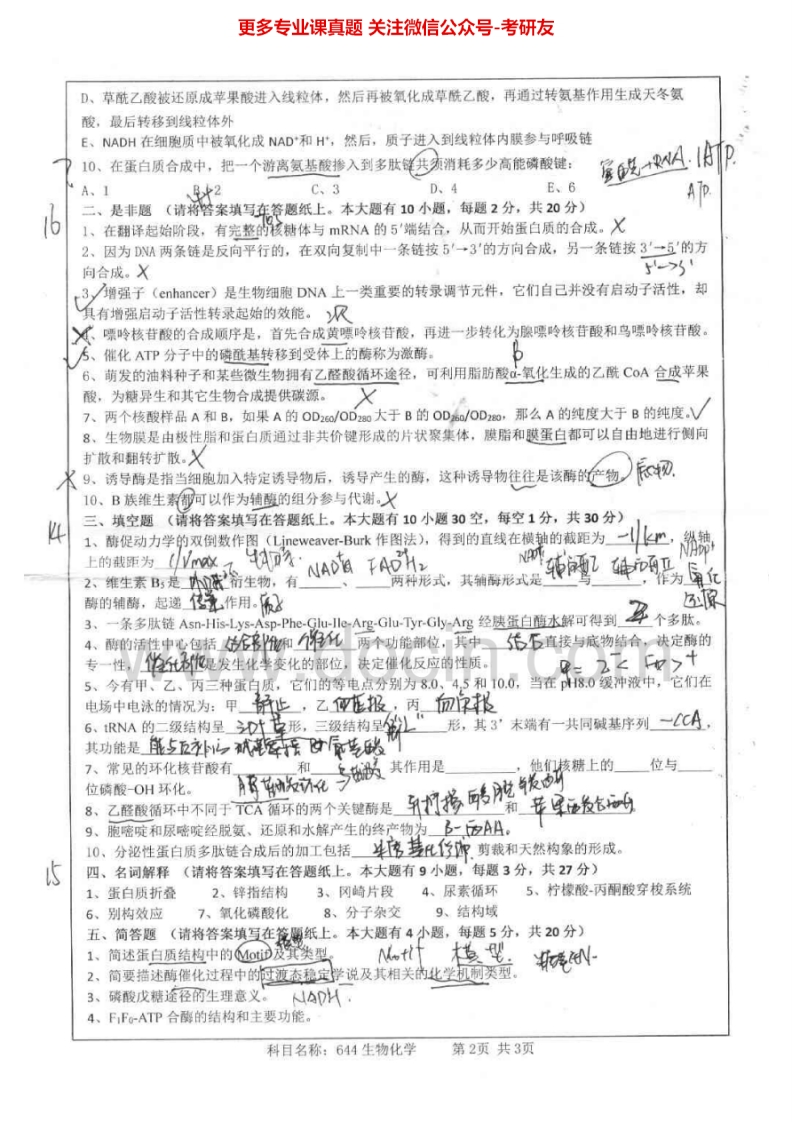 更多专业课真题 关注微信公众号-考研友
D、草酰乙酸被还原成苹果酸进入线粒体，然后再被氧化成草酰乙酸，再通过转氨基作用生成天冬氨
酸，最后转移到线粒体外
E、NADH 在细胞质中被氧化成 NAD⁺和 H⁺，然后，质子进入到线粒体内膜参与呼吸链
10、在蛋白质合成中，把一个游离氨基酸掺入到多肽链共须消耗多少高能磷酸键：
A、1 B、2 C、3 D、4 E、6
ATP.
16
二、是非题 （请将答案填写在答题纸上。本大题有 10 小题，每题 2 分，共 20 分）
1、在翻译起始阶段，有完整的核糖体与 mRNA 的 5′端结合，从而开始蛋白质的合成。X
2、因为 DNA 两条链是反向平行的，在双向复制中一条链按 5′→3′的方向合成，另一条链按 3′→5′的方
向合成。X 5'→3'
3、增强子（enhancer）是生物细胞 DNA 上一类重要的转录调节元件，它们自己并没有启动子活性，却
具有增强启动子活性转录起始的效能。 次
4、嘌呤核苷酸的合成顺序是，首先合成黄嘌呤核苷酸，再进一步转化为腺嘌呤核苷酸和鸟嘌呤核苷酸。
5、催化 ATP 分子中的磷酰基转移到受体上的酶称为激酶。 β
6、萌发的油料种子和某些微生物拥有乙醛酸循环途径，可利用脂肪酸α-氧化生成的乙酰 CoA 合成苹果
酸，为糖异生和其它生物合成提供碳源。 X
7、两个核酸样品 A 和 B，如果 A 的 OD₂₆₀/OD₂₈₀ 大于 B 的 OD₂₆₀/OD₂₈₀，那么 A 的纯度大于 B 的纯度。√
8、生物膜是由极性脂和蛋白质通过非共价键形成的片状聚集体，膜脂和膜蛋白都可以自由地进行侧向
扩散和翻转扩散。X
9、诱导酶是指当细胞加入特定诱导物后，诱导产生的酶，这种诱导物往往是该酶的产物。 底物.
10、B 族维生素都可以作为辅酶的组分参与代谢。X
14
三、填空题 （请将答案填写在答题纸上。本大题有 10 小题 30 空，每空 1 分，共 30 分）
1、酶促动力学的双倒数作图（Lineweaver-Burk 作图法），得到的直线在横轴的截距为 -1/km ，纵轴
上的截距为 1/Vmax
2、维生素 B₅ 是 衍生物，有 、 两种形式，其辅酶形式是 辅酶I 与 辅酶II ，作为 氧化还原
酶的辅酶，起递 作用。
3、一条多肽链 Asn-His-Lys-Asp-Phe-Glu-Ile-Arg-Glu-Tyr-Gly-Arg 经胰蛋白酶水解可得到 个多肽。
4、酶的活性中心包括 结合部位 和 催化 两个功能部位，其中 结合 直接与底物结合，决定酶的
专一性， 催化部位 是发生化学变化的部位，决定催化反应的性质。
5、今有甲、乙、丙三种蛋白质，它们的等电点分别为 8.0、4.5 和 10.0，当在 pH8.0 缓冲液中，它们在
电场中电泳的情况为：甲 静止 ，乙 向正极 ，丙 向负极
6、tRNA 的二级结构呈 三叶草 形，三级结构呈 倒L 形，其 3′末端有一共同碱基序列 -CCA ，
其功能是
7、常见的环化核苷酸有 和 其作用是 ，他们核糖上的 位与
位磷酸-OH 环化。
8、乙醛酸循环中不同于 TCA 循环的两个关键酶是 异柠檬酸裂解酶 和 苹果酸合酶
9、胞嘧啶和尿嘧啶经脱氨、还原和水解产生的终产物为 β-丙AA。
10、分泌性蛋白质多肽链合成后的加工包括 、剪裁和天然构象的形成。
15
四、名词解释 （请将答案填写在答题纸上。本大题有 9 小题，每题 3 分，共 27 分）
1、蛋白质折叠 2、锌指结构 3、冈崎片段 4、尿素循环 5、柠檬酸-丙酮酸穿梭系统
6、别构效应 7、氧化磷酸化 8、分子杂交 9、结构域
五、简答题 （请将答案填写在答题纸上。本大题有 4 小题，每题 5 分，共 20 分）
1、简述蛋白质结构中的 Motif 及其类型。 Motif 模型.
2、简要描述酶催化过程中的过渡态稳定学说及其相关的化学机制类型。
3、磷酸戊糖途径的生理意义。 NADH.
4、F₁F₀-ATP 合酶的结构和主要功能。
www.docin.com
科目名称：644 生物化学 第 2页 共 3页